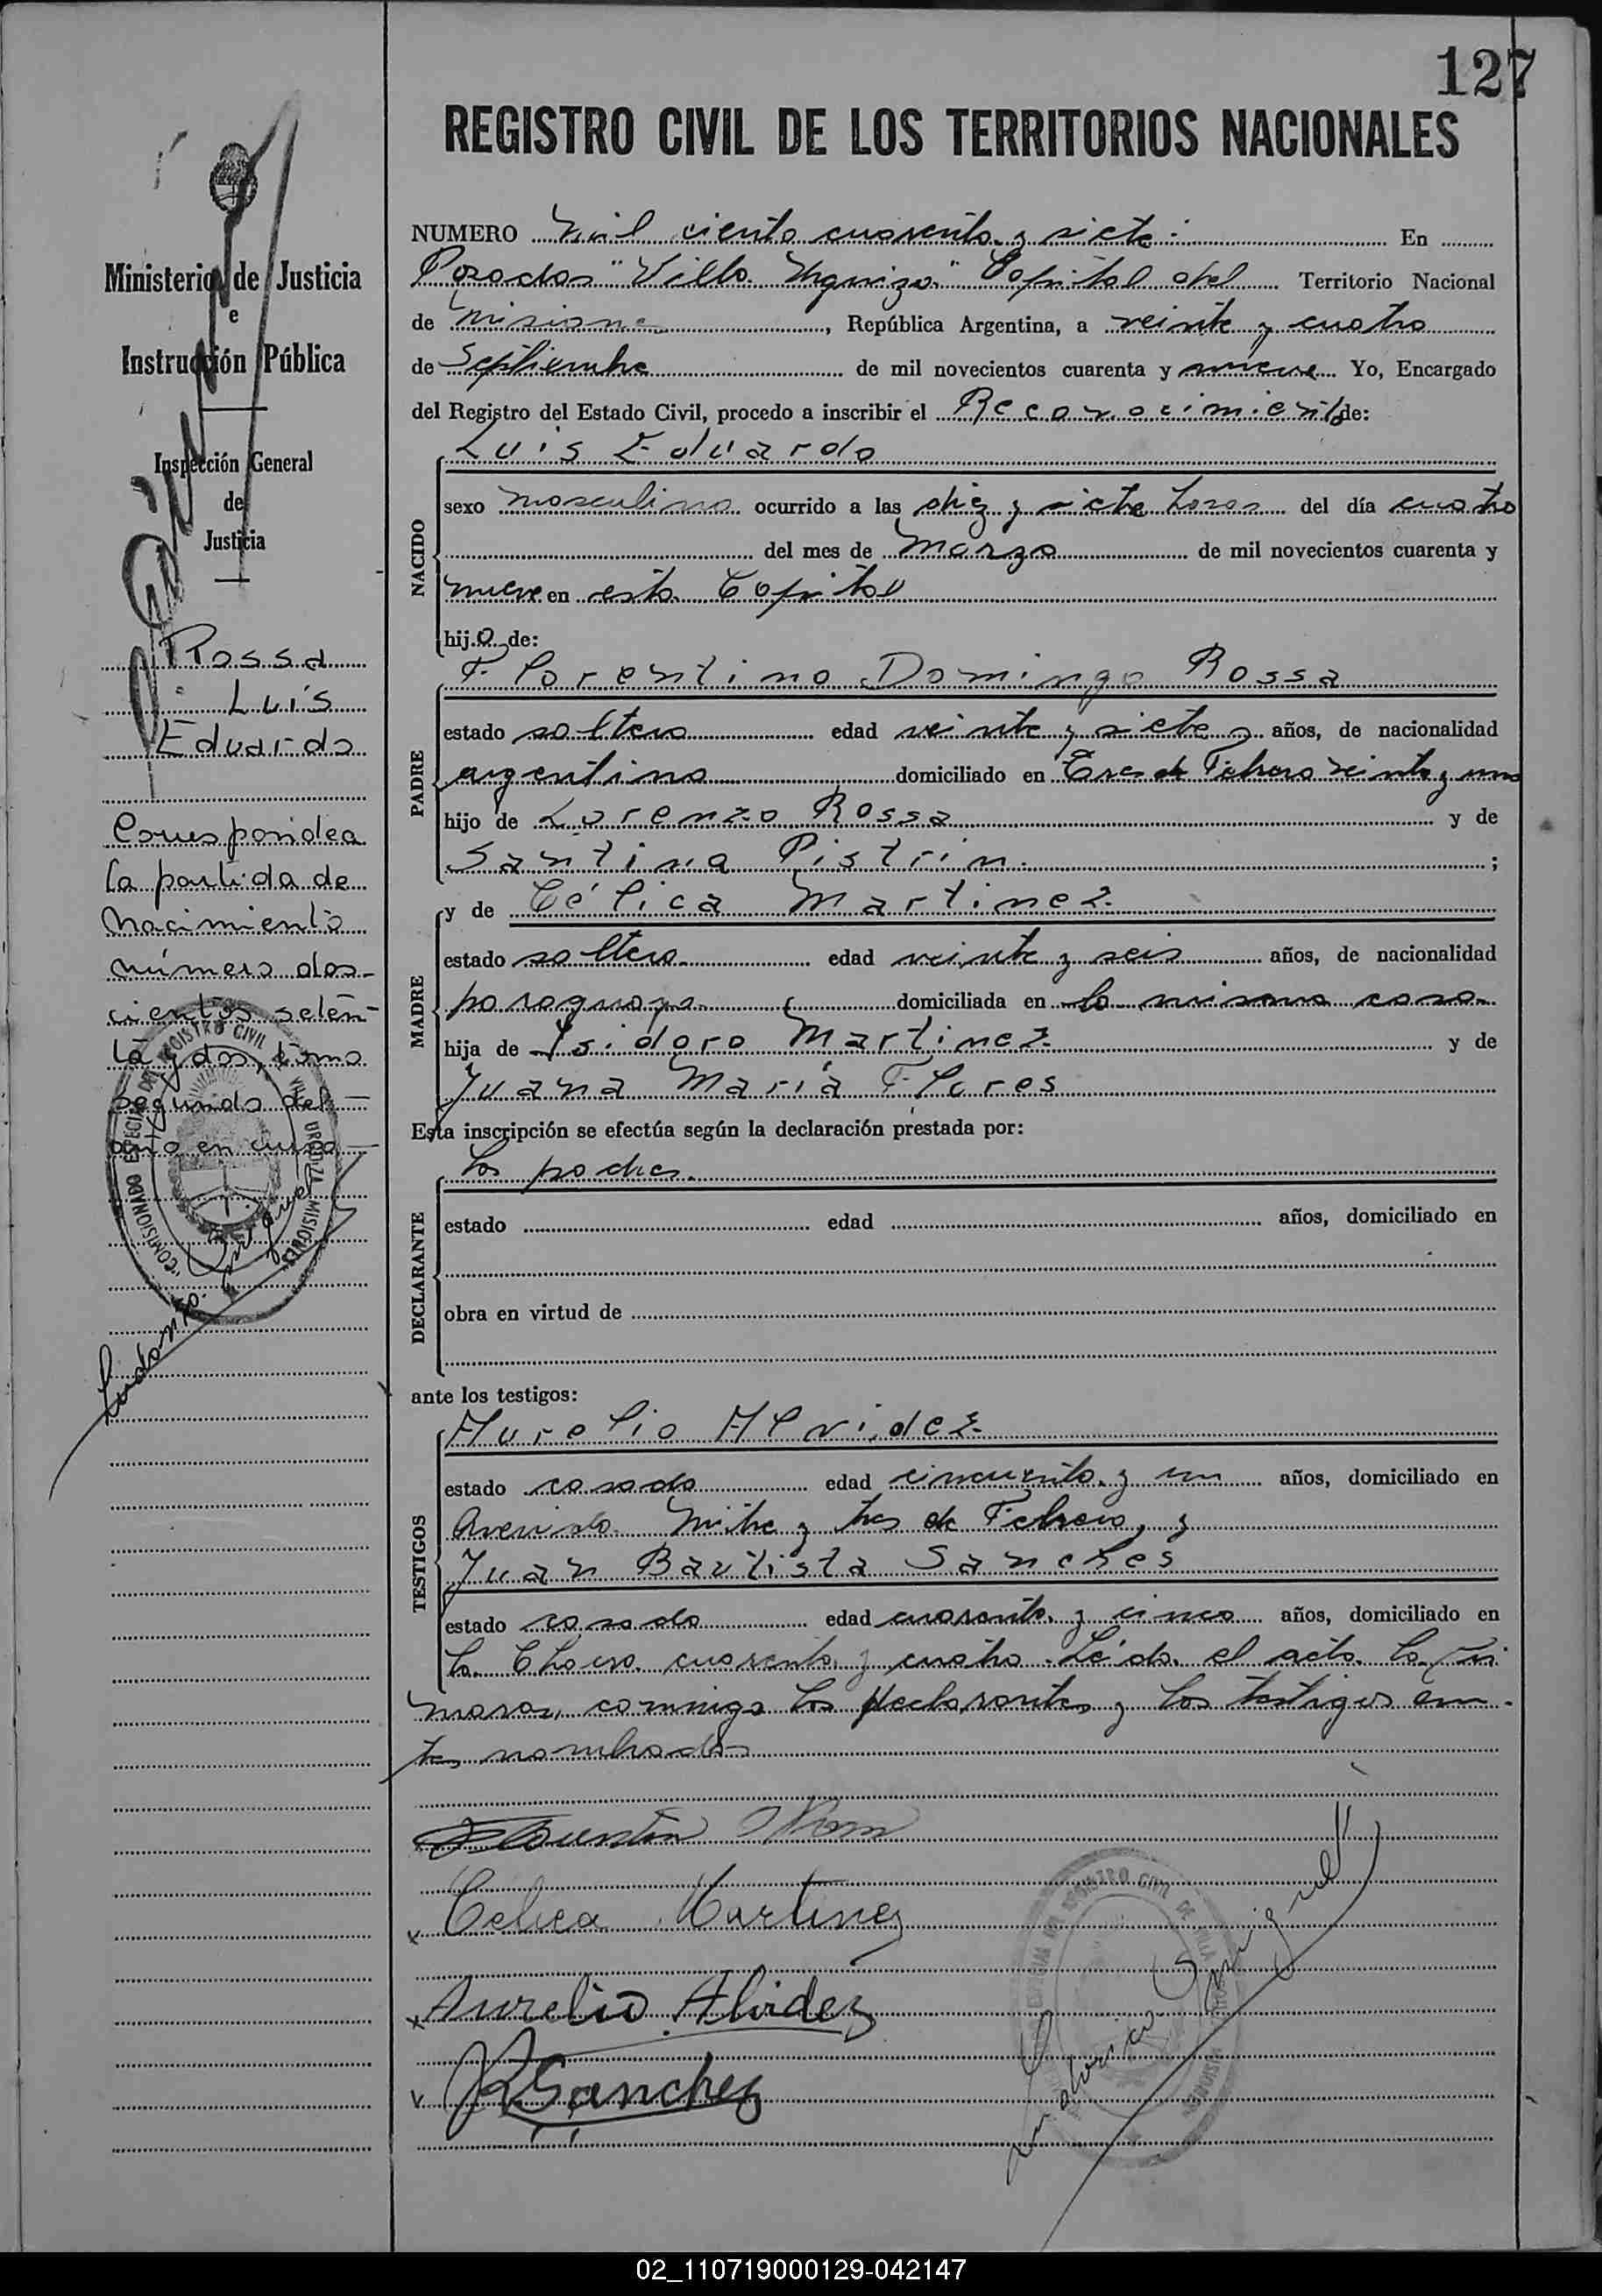 127
REGISTRO CIVIL DE LOS TERRITORIOS NACIONALES
Ministerio de Justicia
e
Instrucción Pública
Inspección General
de
Justicia
Original
Rossa
Luis
Eduardo
Corresponde a
la partida de
Nacimiento
número dos-
cientos seten-
ta y dos, tomo
segundo del
año en curso
NUMERO Mil ciento cuarenta y siete. En
Posadas "Villa Urquiza" Capital del Territorio Nacional
de Misiones, República Argentina, a veinte y cuatro
de Septiembre de mil novecientos cuarenta y nueve Yo, Encargado
del Registro del Estado Civil, procedo a inscribir el Reconocimiento de:
NACIDO
Luis Eduardo
sexo masculino ocurrido a las diez y siete horas del día cuatro
del mes de Marzo de mil novecientos cuarenta y
nueve en esta Capital
hijo de:
PADRE
Florentino Domingo Rossa
estado soltero edad veinte y siete años, de nacionalidad
argentino domiciliado en Tres de Febrero veinte y uno
hijo de Lorenzo Rossa y de
Santina Pistrin. ;
MADRE
y de Célica Martinez.
estado soltera edad veinte y seis años, de nacionalidad
paraguaya domiciliada en la misma casa
hija de Isidoro Martinez y de
Juana María Flores
Esta inscripción se efectúa según la declaración prestada por:
DECLARANTE
los padres.
estado edad años, domiciliado en
obra en virtud de
ante los testigos:
TESTIGOS
Aurelio Alvidez
estado casado edad cincuenta y un años, domiciliado en
Avenida Mitre y tres de Febrero, y
Juan Bautista Sanches
estado casado edad cuarenta y cinco años, domiciliado en
la Chacra cuarenta y cuatro. Leída el acta la fir
maron conmigo los declarantes y los testigos an-
tes nombrados
Celica Martinez
Aurelio Alvidez
JBSanchez
02_110719000129-042147